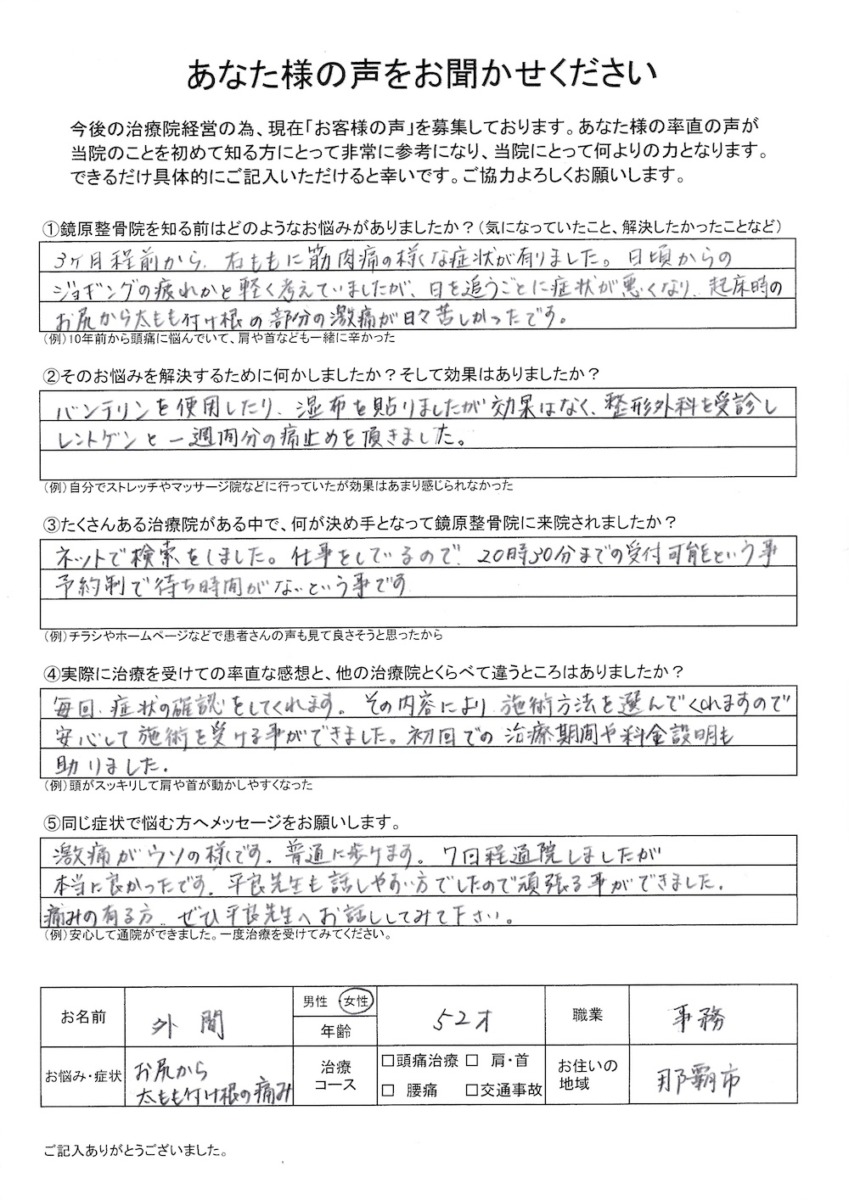 あなた様の声をお聞かせください
今後の治療院経営の為、現在「お客様の声」を募集しております。あなた様の率直の声が
当院のことを初めて知る方にとって非常に参考になり、当院にとって何よりの力となります。
できるだけ具体的にご記入いただけると幸いです。ご協力よろしくお願いします。
①鏡原整骨院を知る前はどのようなお悩みがありましたか？（気になっていたこと、解決したかったことなど）
3ヶ月程前から、右ももに筋肉痛の様な症状が有りました。日頃からの
ジョギングの疲れかと軽く考えていましたが、日を追うごとに症状が悪くなり、起床時の
お尻から太もも付け根の部分の激痛が日々苦しかったです。
（例）10年前から頭痛に悩んでいて、肩や首なども一緒に辛かった
②そのお悩みを解決するために何かしましたか？そして効果はありましたか？
バンテリンを使用したり、湿布を貼りましたが効果はなく、整形外科を受診し
レントゲンと一週間分の痛止めを頂きました。
（例）自分でストレッチやマッサージ院などに行っていたが効果はあまり感じられなかった
③たくさんある治療院がある中で、何が決め手となって鏡原整骨院に来院されましたか？
ネットで検索をしました。仕事をしているので、20時30分までの受付可能という事
予約制で待ち時間がないという事です
（例）チラシやホームページなどで患者さんの声も見て良さそうと思ったから
④実際に治療を受けての率直な感想と、他の治療院とくらべて違うところはありましたか？
毎回、症状の確認をしてくれます。その内容により、施術方法を選んでくれますので
安心して施術を受ける事ができました。初回での治療期間や料金説明も
助りました.
（例）頭がスッキリして肩や首が動かしやすくなった
⑤同じ症状で悩む方へメッセージをお願いします。
激痛がウソの様です。普通に歩けます。7日程通院しましたが
本当に良かったです。平良先生も話しやすい方でしたので頑張る事ができました.
痛みの有る方、ぜひ平良先生へお話ししてみて下さい。
（例）安心して通院ができました。一度治療を受けてみてください。
お名前 外間 男性 女性 年齢 52才 職業 事務
お悩み・症状 お尻から 太もも付け根の痛み 治療コース □頭痛治療 □ 肩・首 □ 腰痛 □交通事故 お住いの地域 那覇市
ご記入ありがとうございました。